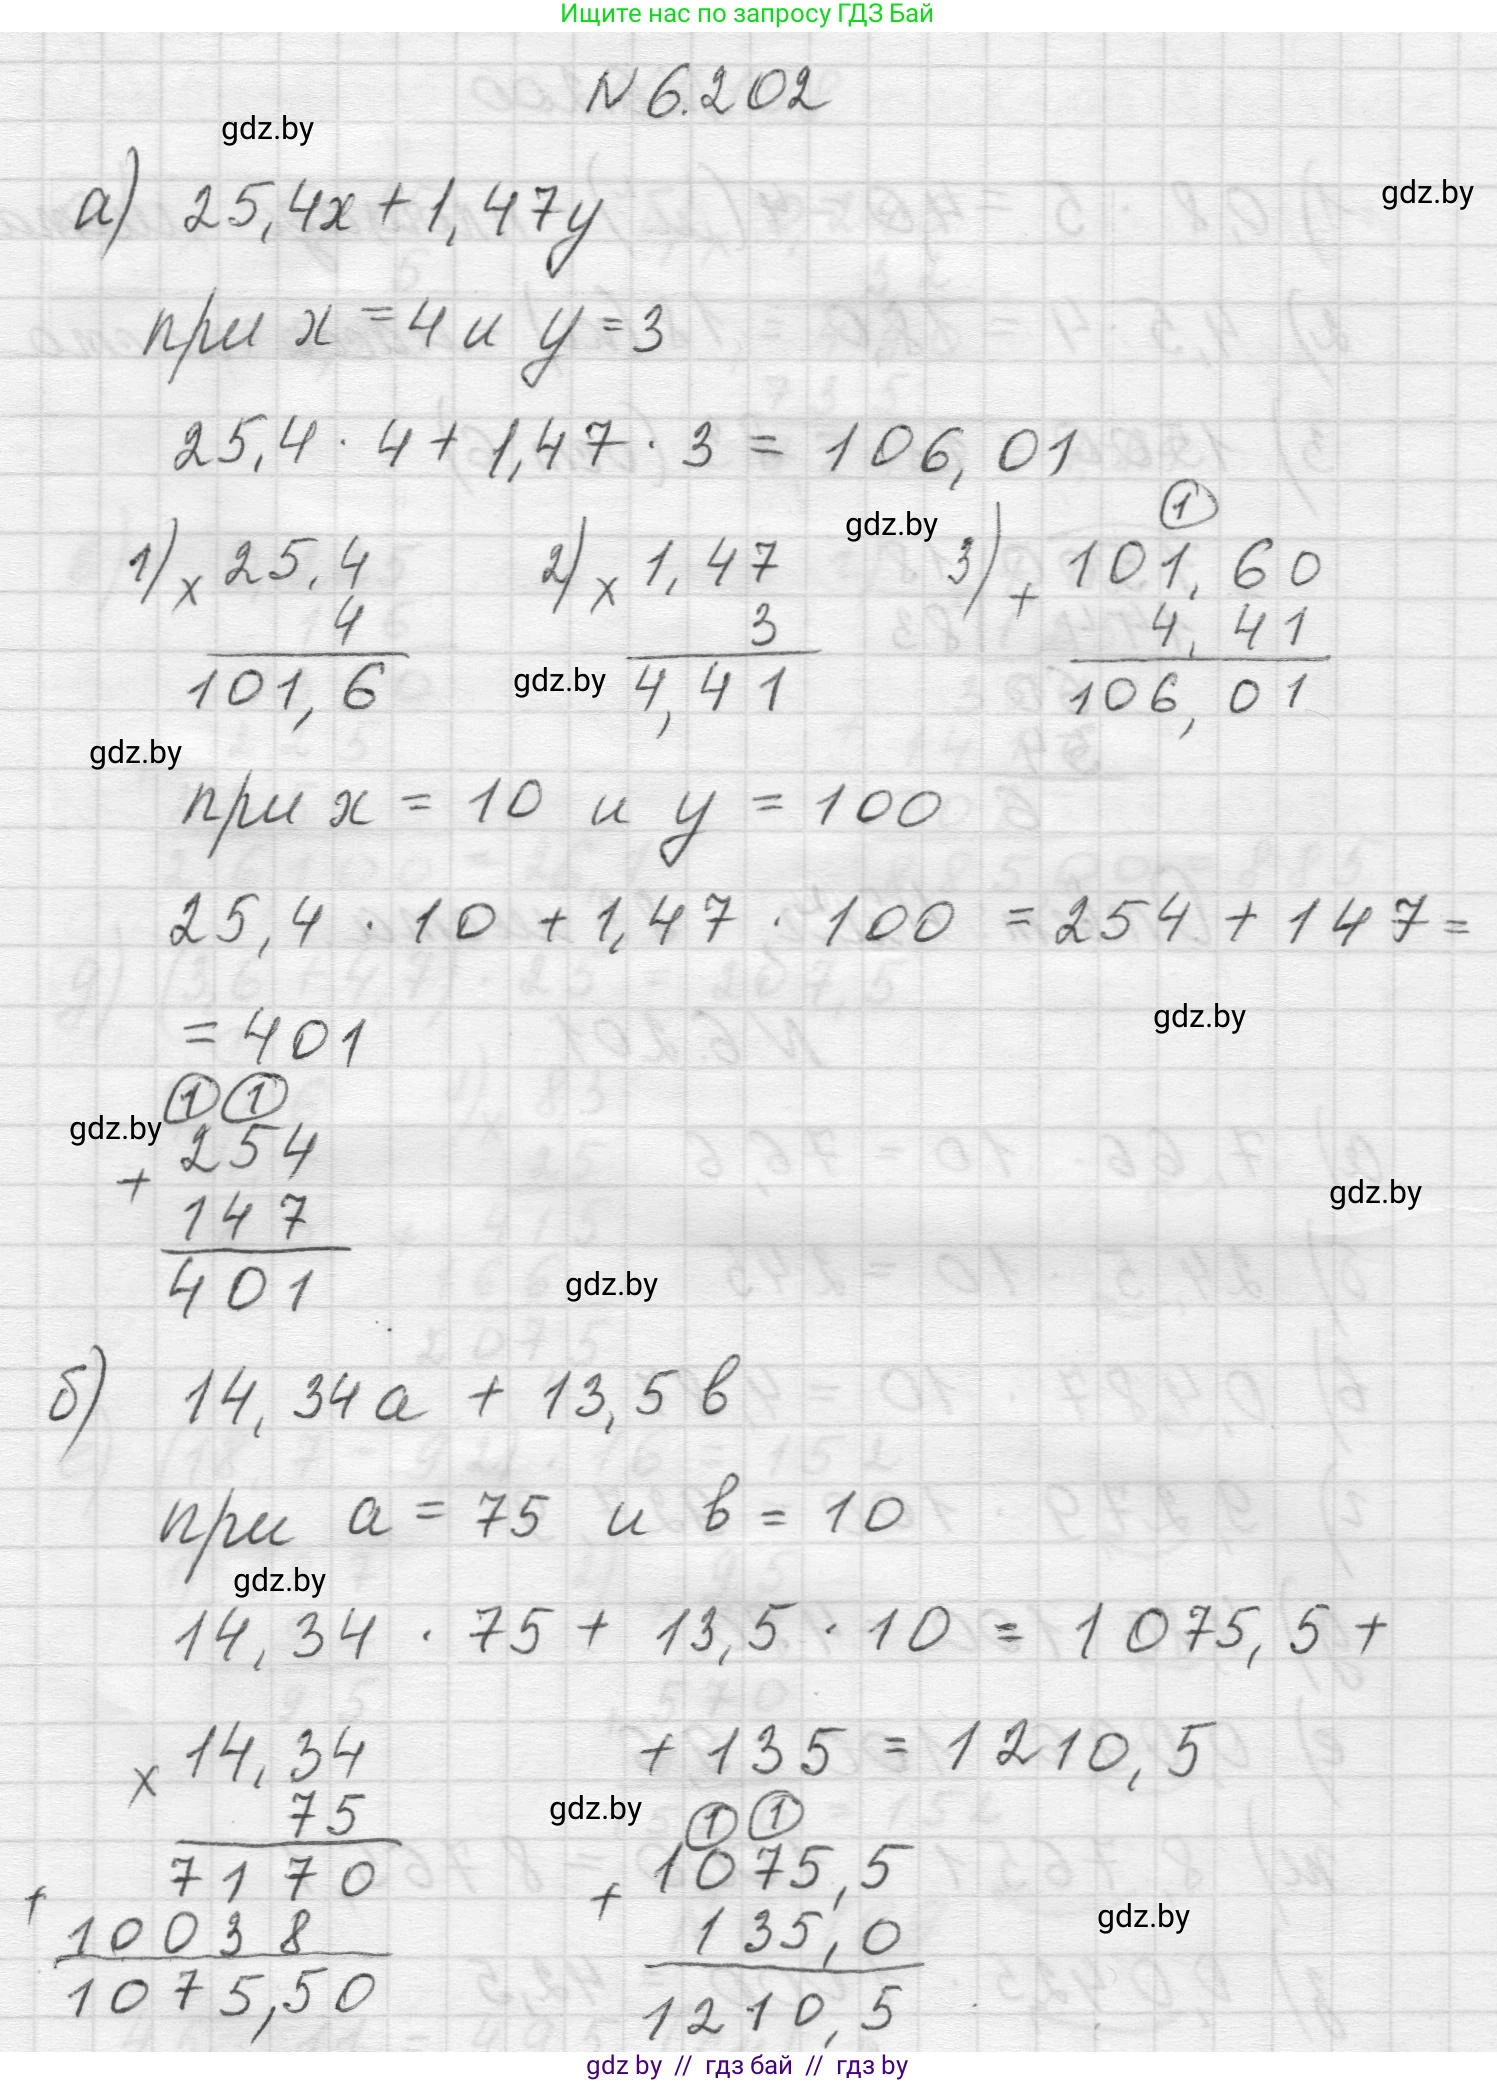 Ищите нас по запросу ГДЗ Бай
N 6.202
gdz.by
gdz.by
а) 25,4x + 1,47y
при x = 4 и y = 3
25,4 · 4 + 1,47 · 3 = 106,01
gdz.by
1) 25,4 2) 1,47 3) 101,60
× 4 × 3 + 4,41
101,6 4,41 106,01
gdz.by
gdz.by
при x = 10 и y = 100
25,4 · 10 + 1,47 · 100 = 254 + 147 =
gdz.by
= 401
1 1
gdz.by
254
+
147
401
gdz.by
gdz.by
б) 14,34a + 13,5b
при a = 75 и b = 10
gdz.by
14,34 · 75 + 13,5 · 10 = 1075,5 +
+ 135 = 1210,5
× 14,34
75
7170
+
10038
1075,50
gdz.by
1 1
1075,5
+
135,0
1210,5
gdz.by
gdz by // гдз бай // гдз by